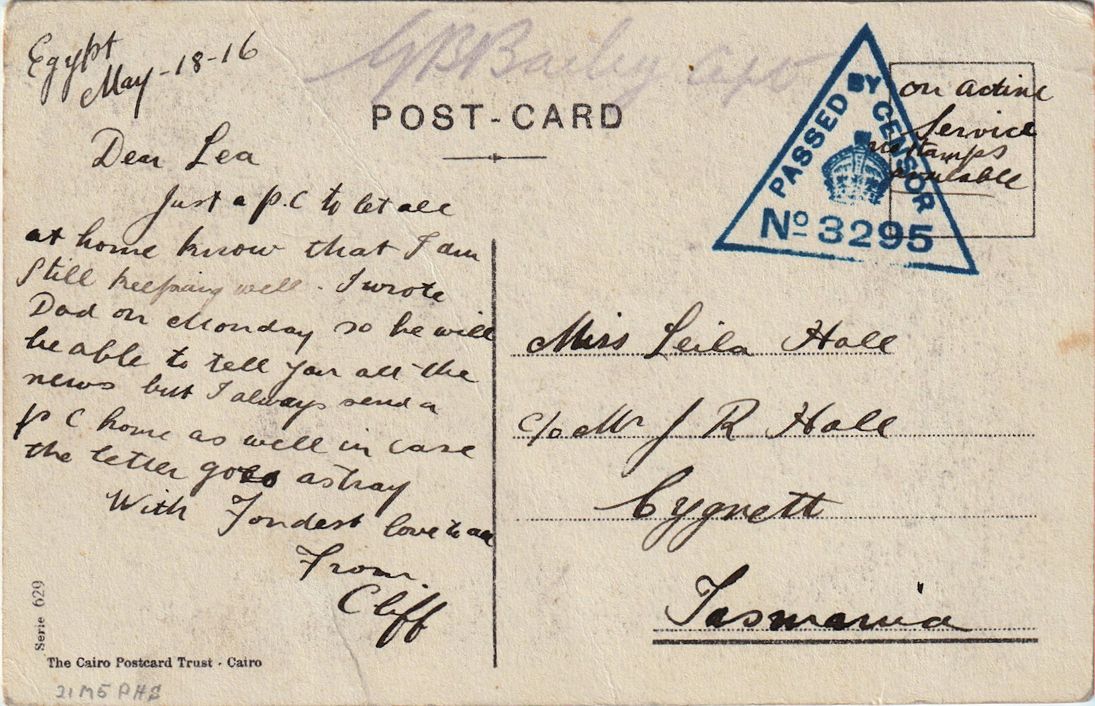 Egypt
May-18-16
Dear Lea
Just a P.C to let all
at home know that I am
still keeping well. I wrote
Dad on Monday so he will
be able to tell you all the
news but I always send a
P C home as well in case
the letter goes astray
With Fondest love to all
From.
Cliff
Serie 629
The Cairo Postcard Trust · Cairo
21M5PHS
GB Bailey Capt
POST-CARD
PASSED BY CENSOR
No 3295
on active
Service
no stamps
available
Miss Leila Hall
c/o Mr J R Hall
Cygnett
Tasmania